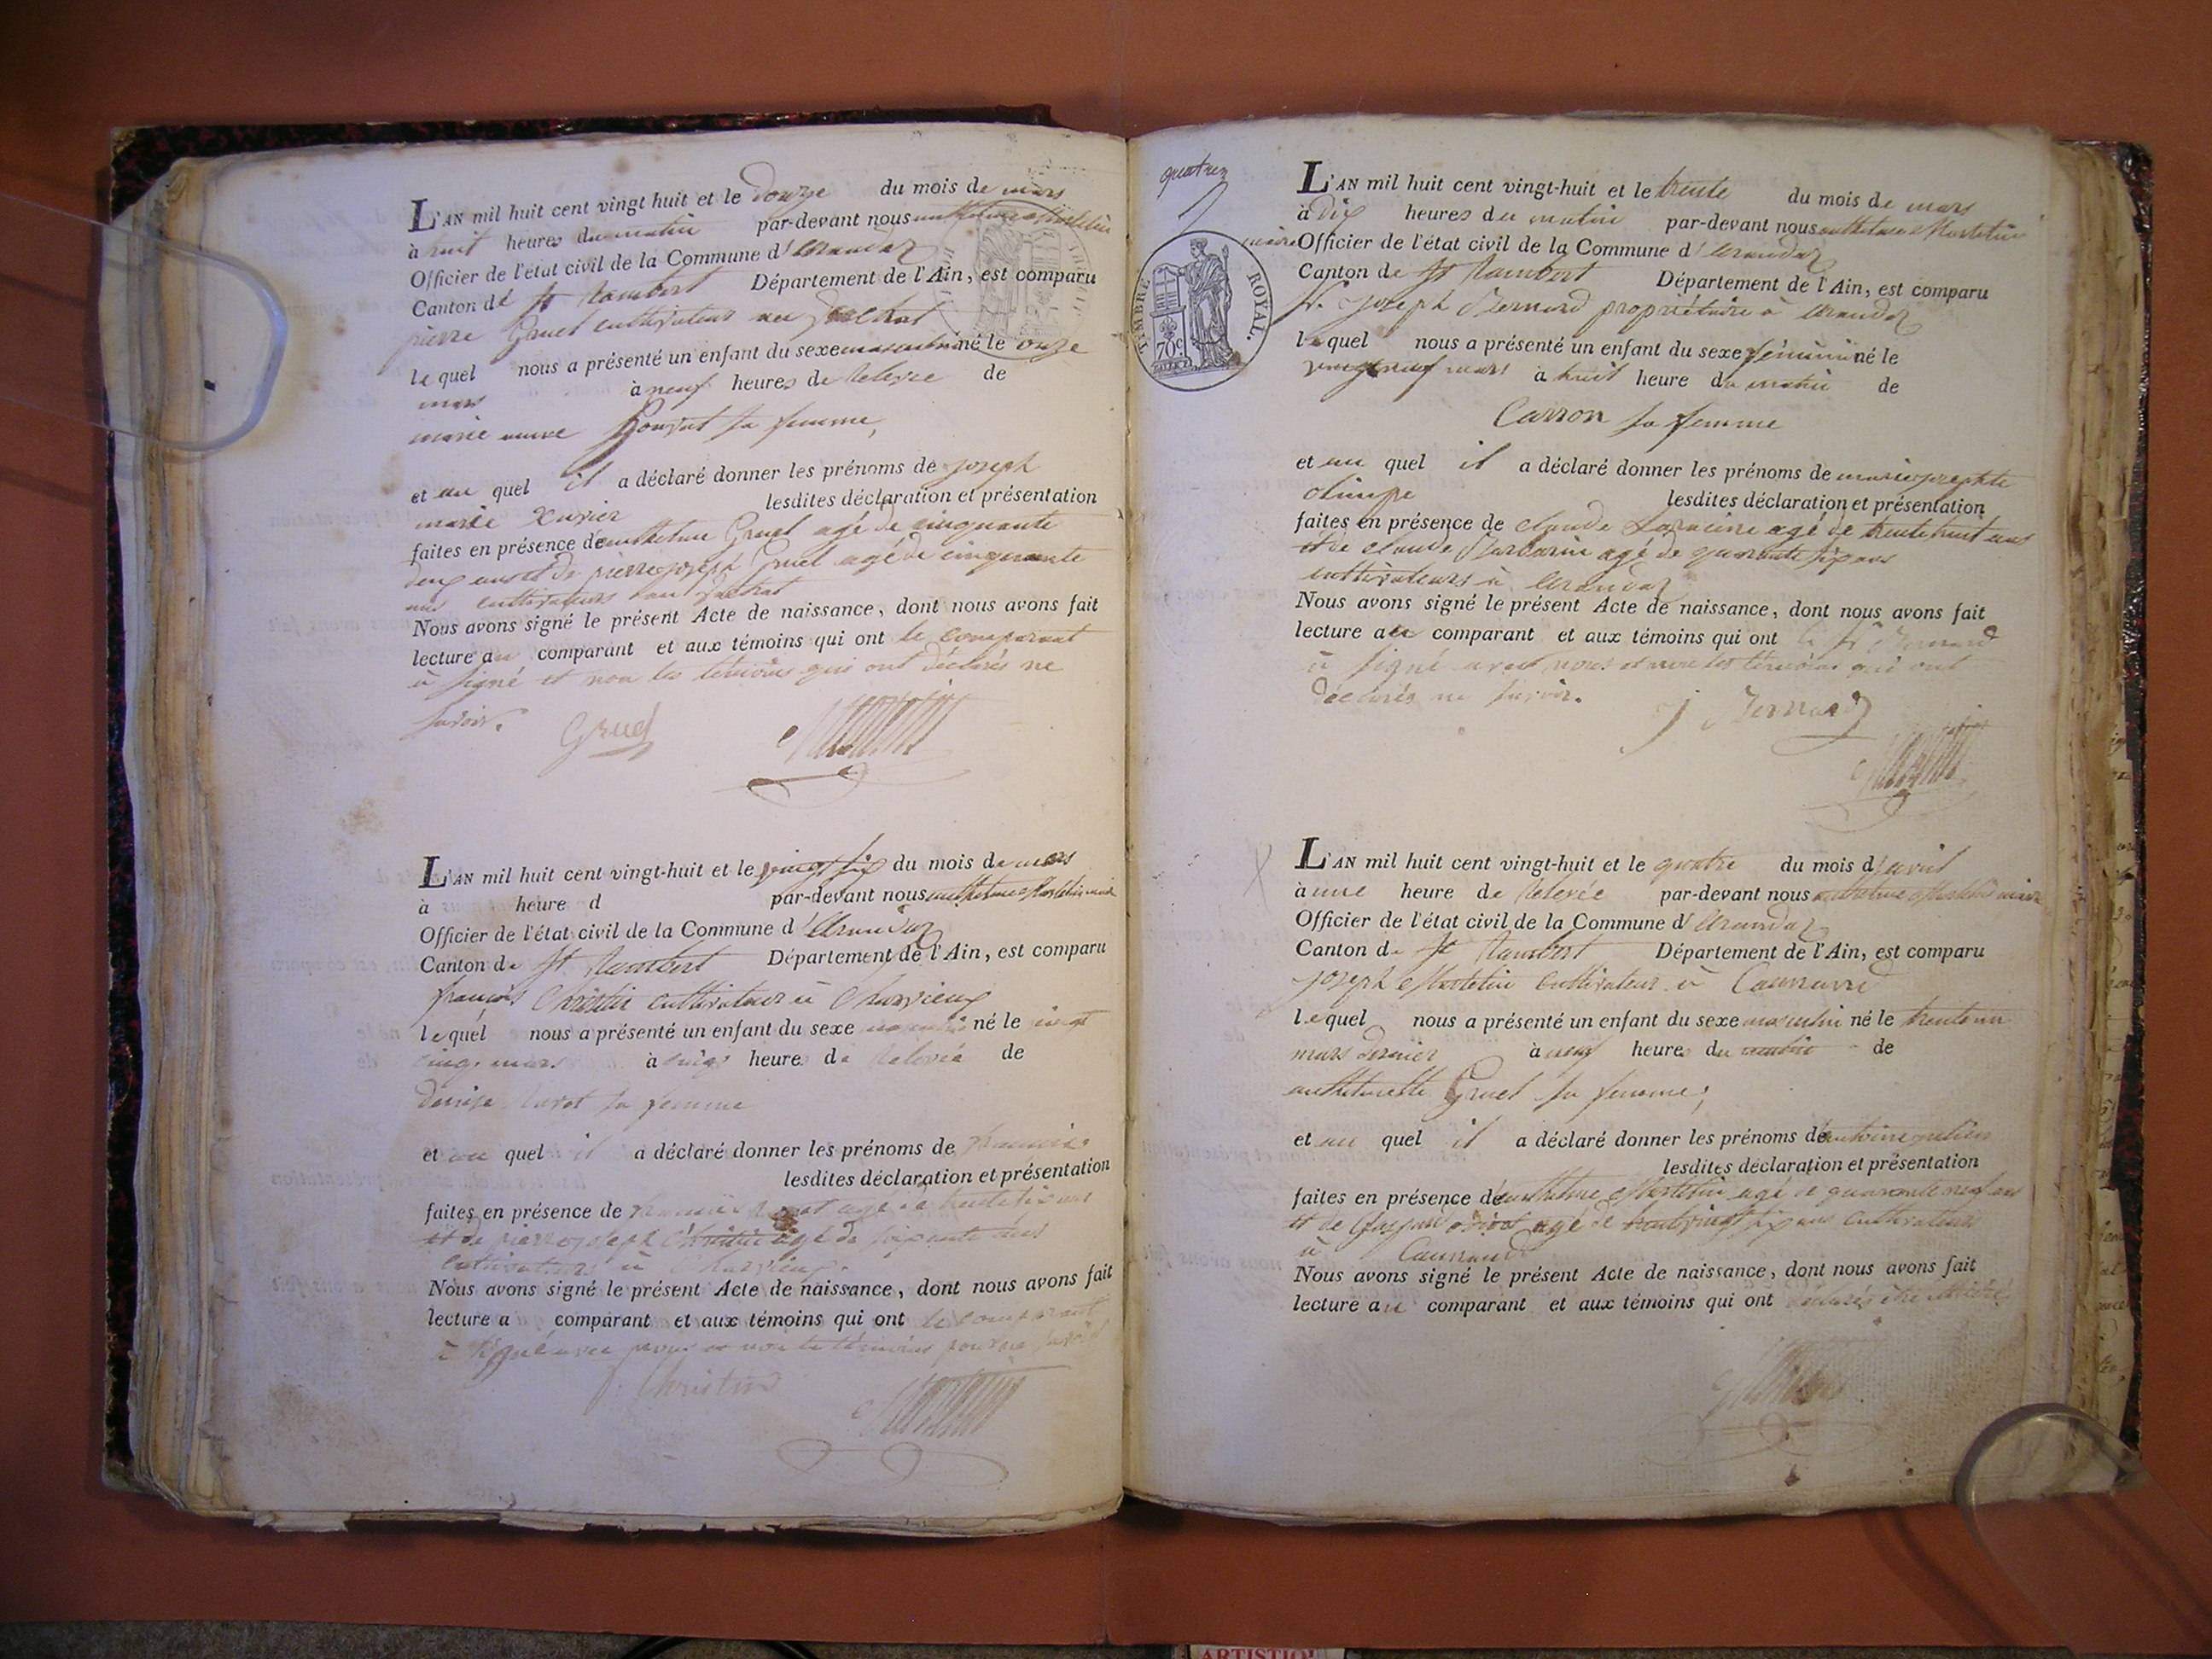 L'AN mil huit cent vingt huit et le douze du mois de mars
à huit heures du matin par-devant nous anthelme Martelin
Officier de l'état civil de la Commune d'arandas
Canton de St Rambert Département de l'Ain, est comparu
pierre Gruel cultivateur au
le quel nous a présenté un enfant du sexe masculin né le onze
mars à neuf heures de relevée de
marie sa femme,
et au quel il a déclaré donner les prénoms de joseph
marie xavier lesdites déclaration et présentation
faites en présence de anthelme Gruel agé de cinquante
deux ans et de pierre joseph Gruel agé de cinquante
ans cultivateurs
Nous avons signé le présent Acte de naissance, dont nous avons fait
lecture au comparant et aux témoins qui ont le comparant
à signé et non les témoins qui ont déclarés ne
savoir.
Gruel
L'AN mil huit cent vingt-huit et le vingt six du mois de mars
à heure d par-devant nous anthelme Martelin maire
Officier de l'état civil de la Commune d'Arandas
Canton de St Rambert Département de l'Ain, est comparu
françois Christin cultivateur à
le quel nous a présenté un enfant du sexe masculin né le vingt
cinq mars à heure de Relevée de
sa femme
et au quel il a déclaré donner les prénoms de
lesdites déclaration et présentation
faites en présence de agé de
et de pierre joseph Christin agé de soixante ans
cultivateurs à
Nous avons signé le présent Acte de naissance, dont nous avons fait
lecture a comparant et aux témoins qui ont le comparant
à signé avec nous et non les témoins pour ne savoir
Christin
quatre
TIMBRE ROYAL.
70c
L'AN mil huit cent vingt-huit et le trente du mois de mars
à dix heures du matin par-devant nous anthelme Martelin
maire Officier de l'état civil de la Commune d'arandas
Canton de St Rambert Département de l'Ain, est comparu
Sr. joseph Bernard propriétaire à arandas
le quel nous a présenté un enfant du sexe féminin né le
vingt neuf mars à huit heure du matin de
Carron sa femme
et au quel il a déclaré donner les prénoms de marie josephte
olimpe lesdites déclaration et présentation
faites en présence de claude agé de trente huit ans
et de claude Barbarin agé de quarante six ans
cultivateurs à arandas
Nous avons signé le présent Acte de naissance, dont nous avons fait
lecture au comparant et aux témoins qui ont le Sr Bernard
à signé avec nous et non les témoins qui ont
déclarés ne savoir.
J Bernard
L'AN mil huit cent vingt-huit et le quatre du mois d'avril
à une heure de relevée par-devant nous anthelme Martelin maire
Officier de l'état civil de la Commune d'arandas
Canton de St Rambert Département de l'Ain, est comparu
joseph Martelin cultivateur à
le quel nous a présenté un enfant du sexe masculin né le trente un
mars dernier à neuf heures du matin de
anthelmette Gruel sa femme;
et au quel il a déclaré donner les prénoms de
lesdites déclaration et présentation
faites en présence de anthelme Martelin agé de quarante neuf ans
et de agé de vingt six ans cultivateurs
à
Nous avons signé le présent Acte de naissance, dont nous avons fait
lecture au comparant et aux témoins qui ont déclarés être
ARTISTIQ